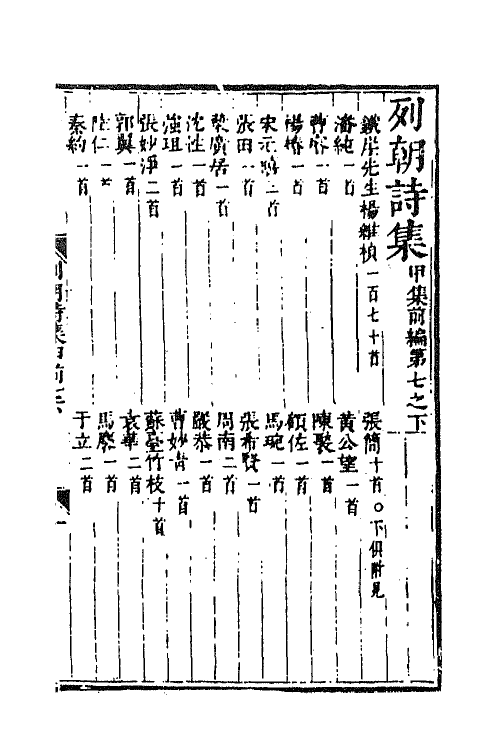 列朝詩集甲集前編第七之下
鐵崖先生楊維楨一百七十首
張簡十首〇下俱附見
潘純一首
黃公望一首
曹睿一首
陳聚一首
楊椿一首
顧佐一首
宋元禧三首
馬琬一首
張田一首
張希賢一首
槩廣居一首
周南二首
沈性一首
嚴恭一首
強珇一首
曹妙清一首
張妙淨二首
蘇臺竹枝十首
郭翼一首
袁華二首
陸仁一首
馬麐一首
秦約一首
于立二首
列朝詩集甲前七下